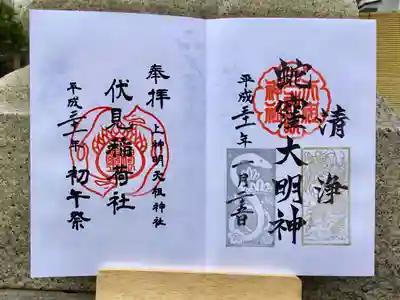 清浄
蛇窪大明神
平成三十一年
奉拝
上神明天祖神社
伏見稲荷社
平成三十一年 初午祭